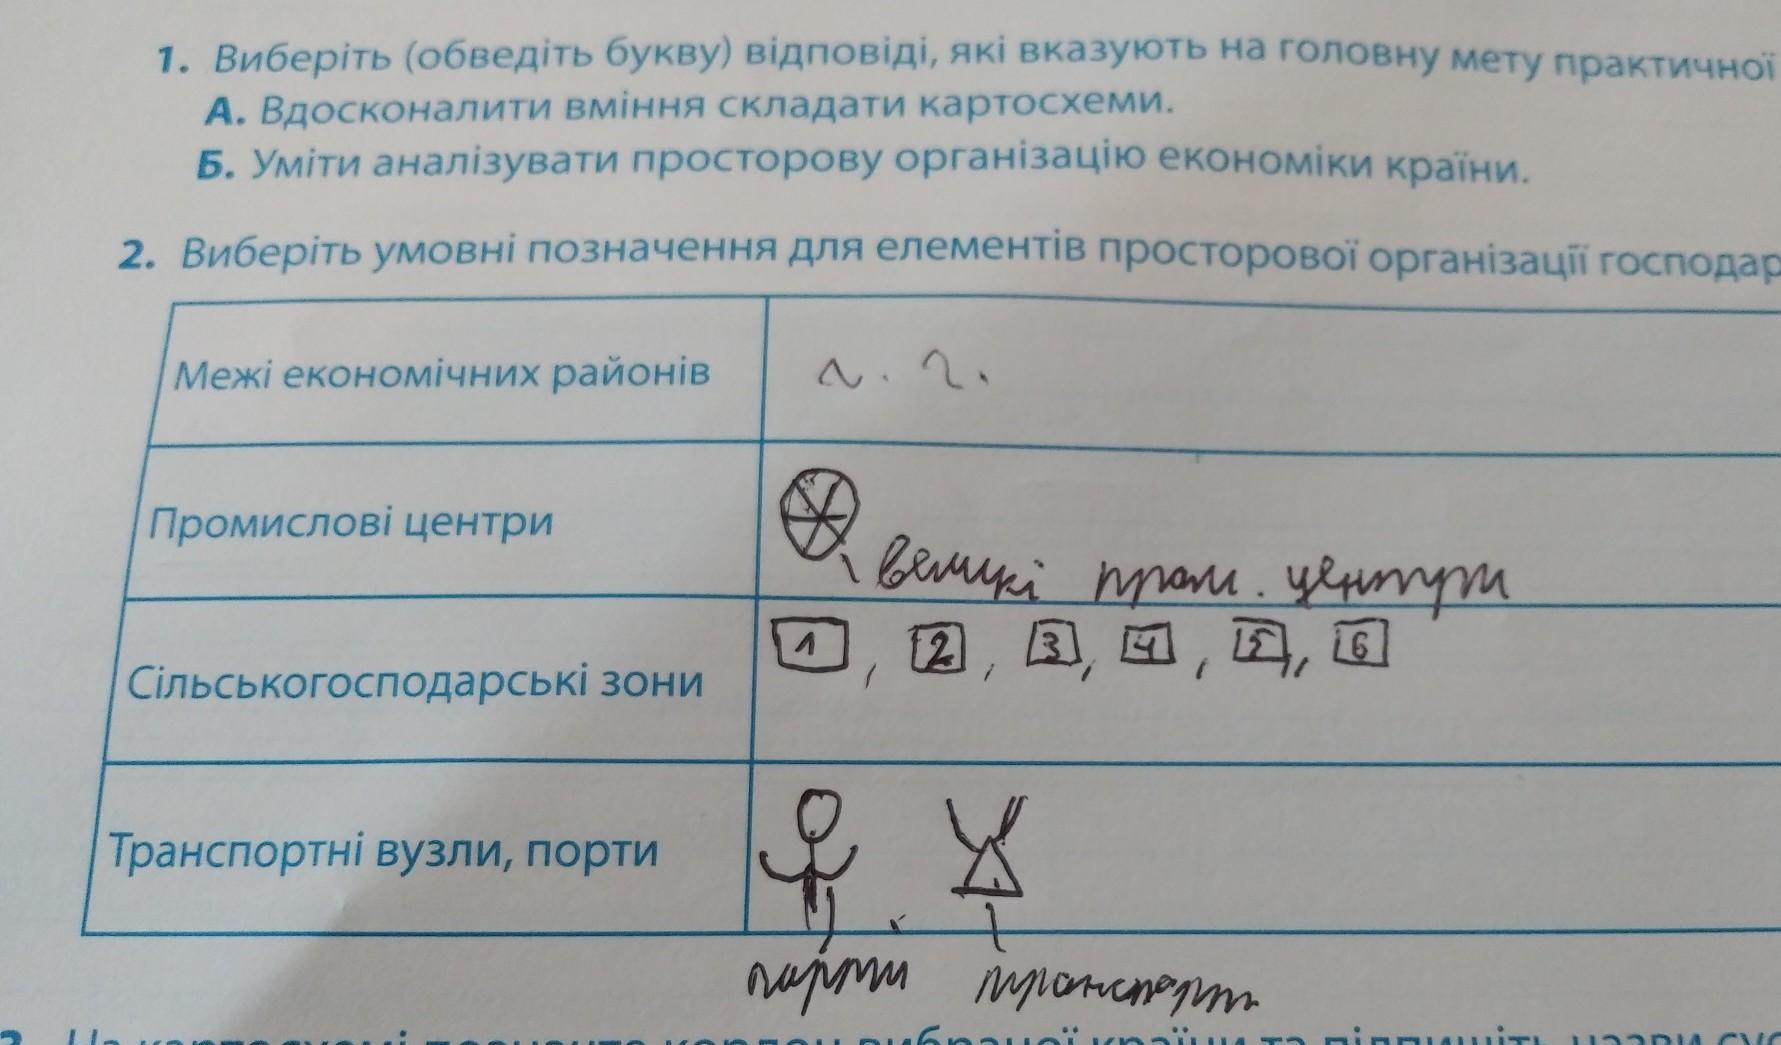 1. Виберіть (обведіть букву) відповіді, які вказують на головну мету практичної
А. Вдосконалити вміння складати картосхеми.
Б. Уміти аналізувати просторову організацію економіки країни.
2. Виберіть умовні позначення для елементів просторової організації господар
Межі економічних районів
Промислові центри
великі пром. центри
Сільськогосподарські зони
1, 2, 3, 4, 5, 6
Транспортні вузли, порти
порти транспорт
3. На картосхемі позначте кордон вибраної країни та підпишіть назви сус